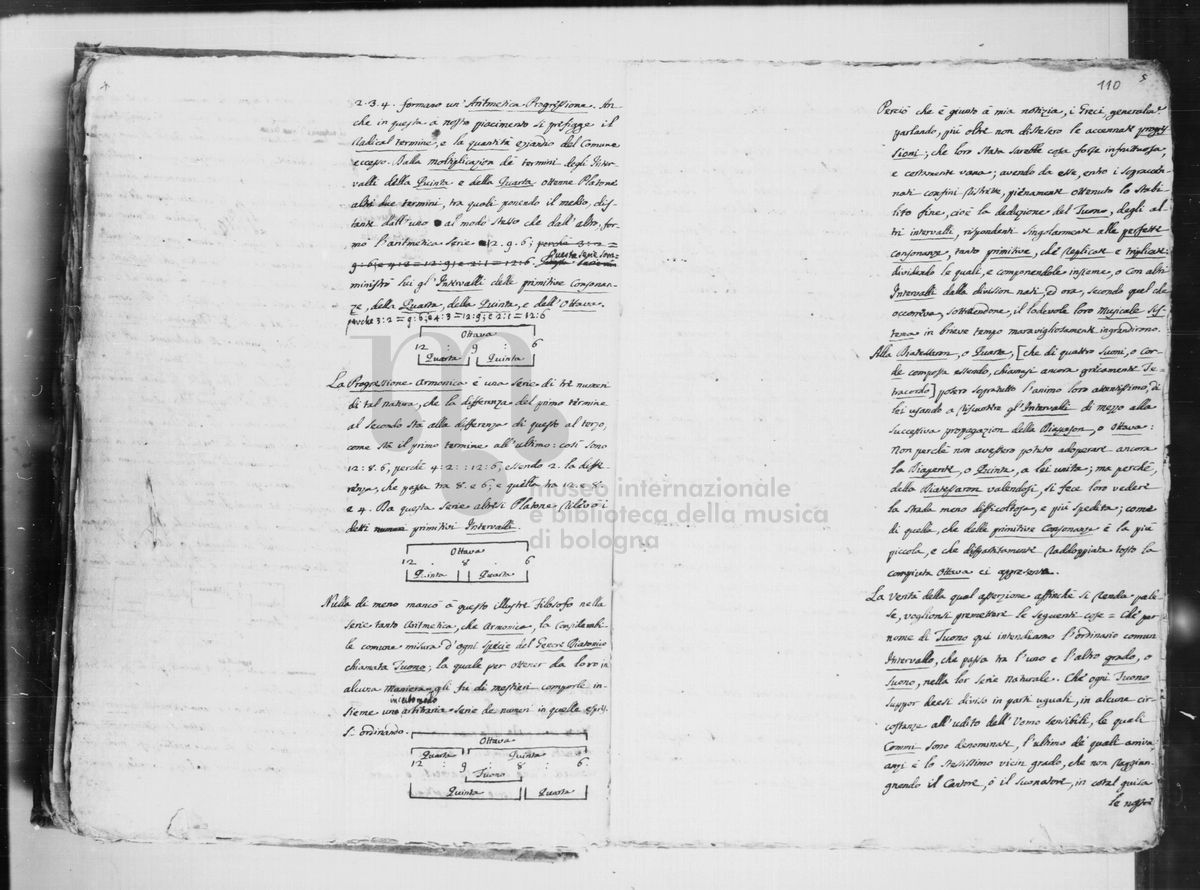 2. 3. 4. formano un' Aritmetica Progressione. An-
che in questa à nostro piacimento si prefigge il
Radical termine, e la quantità eziandio del Comune
eccesso. Dalla moltiplicazion de' termini degli Inter-
valli della Quinta e della Quarta ottenne Platone
altri due termini, tra quali ponendo il mezzo, dis-
tante dall' uno al modo stesso che dall' altro, for-
mò l'aritmetica serie 12. 9. 6; perchè 3:2 =
9:6; e 4:3 = 12:9; e 2:1 = 12:6. Questa serie som-
ministrò lui gl' Intervalli delle primitive Consonan-
ze, della Quarta, della Quinta, e dell' Ottava.
perchè 3:2 = 9:6; e 4:3 = 12:9; e 2:1 = 12:6
Ottava
12 : 9 : 6
Quarta Quinta
La Progressione Armonica è una serie di trè numeri
di tal natura, che la differenza del primo termine
al secondo stà alla differenza di questo al terzo,
come stà il primo termine all' ultimo: così sono
12: 8. 6, perchè 4:2 :: 12:6, essendo 2. la diffe-
renza, che passa tra 8. e 6; e quella tra 12. e 8.
e 4. Da questa serie altresì Platone rilevò i
detti primitivi Intervalli.
Ottava
12 : 8 : 6
Quinta Quarta
Nulla di meno mancò à questo illustre Filosofo nella
serie tanto Aritmetica, che Armonica, la
le comune misura d'ogni spezie del Genere Diatonico
chiamata Tuono; la quale per ottener da loro in
alcuna maniera gli fu di mestieri comporle in-
sieme arbitraria serie de numeri in quelle
ordinando.
Ottava
Quarta Quinta
12 : 9 : 8 : 6
Tuono
Quinta Quarta
110
5
Perciò che è giunto à mia notizia, i Greci generalm.e
parlando, più oltre non distesero le accennate progres-
sioni; che loro stata sarebbe cosa forse infruttuosa,
e certamente vana; avendo da esse, entro i sopraccen-
nati confini ristrette, pienamente ottenuto lo stabi-
lito fine, cioè la deduzione del Tuono, degli al-
tri intervalli, rispondenti singolarmente alle perfette
consonanze, tanto primitive, che replicate e triplicate:
dividendo le quali, e componendole insieme, o con altri
Intervalli dalla division nati, ed ora, secondo quel che
occorreva, sottraendone, il lodevole loro Musicale Sis-
tema in brieve tempo maravigliosamente ingrandirono.
Alla Diatesseron, o Quarta, [che di quattro suoni, o cor-
de composta essendo, chiamasi ancora grecamente Te-
tracordo] posero sopratutto l'animo loro attentissimo, di
lei usando a riscontrare gl' Intervalli di mezzo alla
successiva propagazion della Diapason, o Ottava:
non perchè non avessero potuto adoperare ancora
la Diapente, o Quinta, a lei unita; ma perchè,
della Diatessaron valendosi, si fece loro vedere
la strada meno difficoltosa, e più spedita; come
di quella, che delle primitive Consonanze è la più
piccola, e che raddoppiata tosto la
compiuta Ottava ci appresenta.
La verità della qual asserzione affinchè si renda pale-
se, voglionsi premettere le seguenti cose = Che per
nome di Tuono qui intendiamo l'ordinario comun
Intervallo, che passa tra l'uno e l'altro grado, o
suono, nella lor serie naturale. Che ogni Tuono
suppor deesi diviso in parti uguali, in alcuna cir-
costanza all' udito dell' Uomo sensibili, le quali
Commi sono denominate, l'ultimo de' quali arriva
anzi è lo stessissimo vicin grado, che non raggiun-
gnendo il Cantore, ò il Suonatore, in cotal guisa
le nostre
museo internazionale
e biblioteca della musica
di bologna